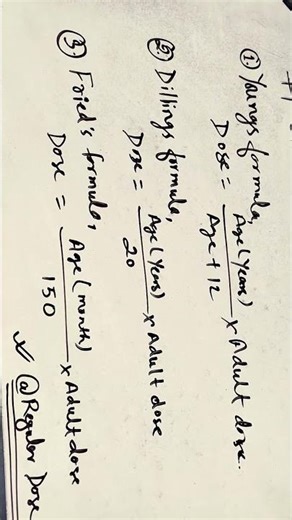 ① Youngs formula,
Dose = Age (Years) / Age + 12 × Adult dose.
② Dillings formula,
Dose = Age (Years) / 20 × Adult dose
③ Fried's formula,
Dose = Age (month) / 150 × Adult dose
@ Regular Dose